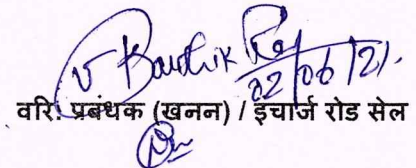 V Boushik Raj
02/06/21.
वरि. प्रबंधक (खनन) / इंचार्ज रोड सेल